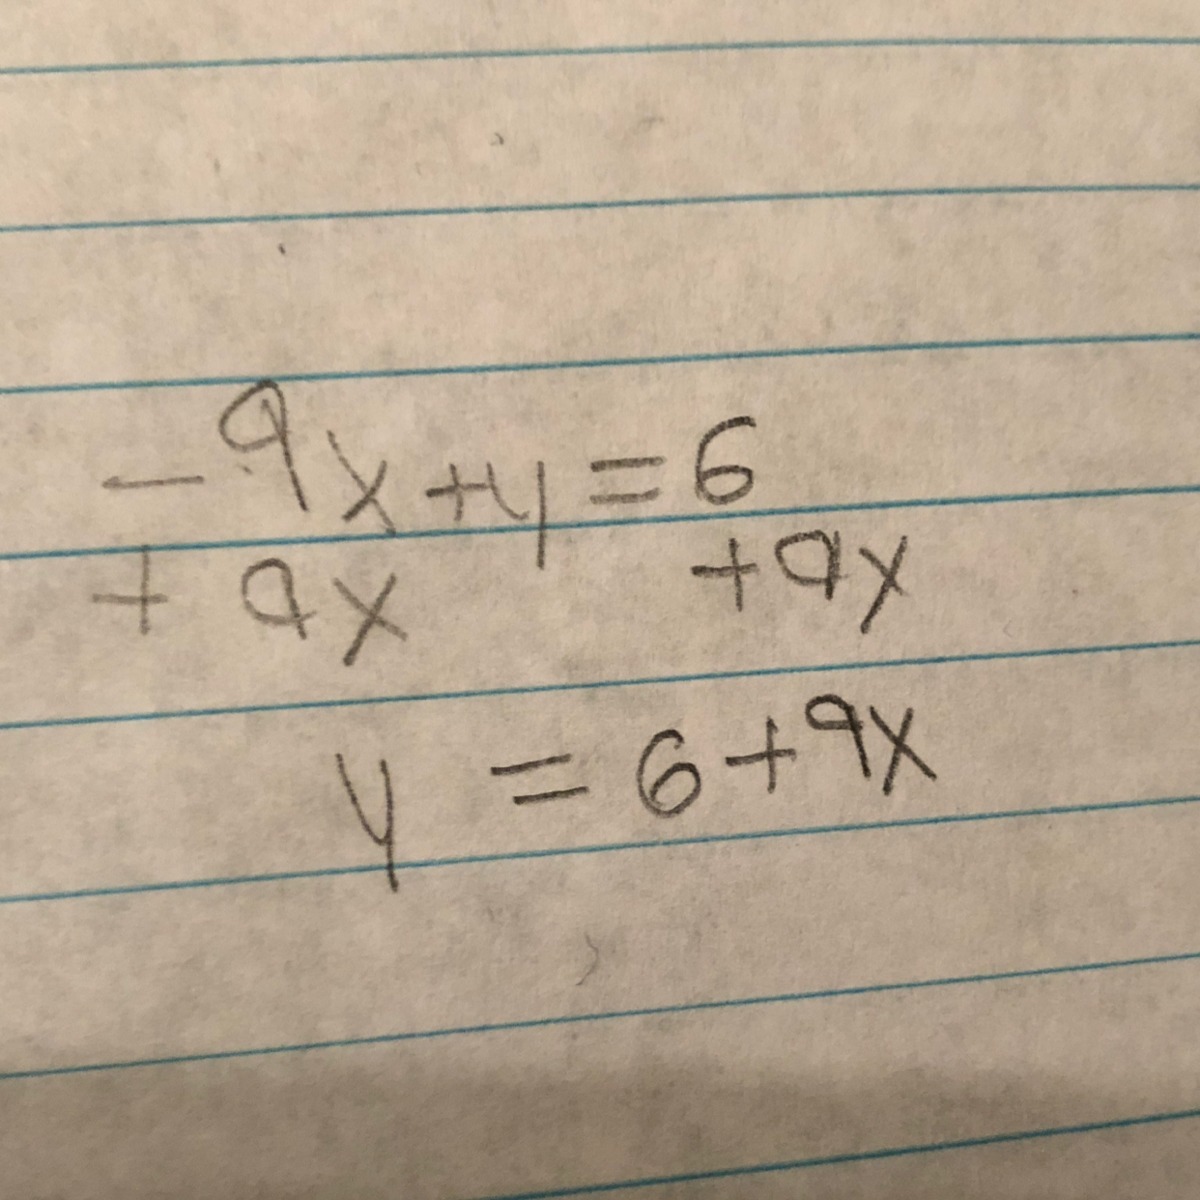 -9x+y=6
+ 9x +9x
y = 6+9x